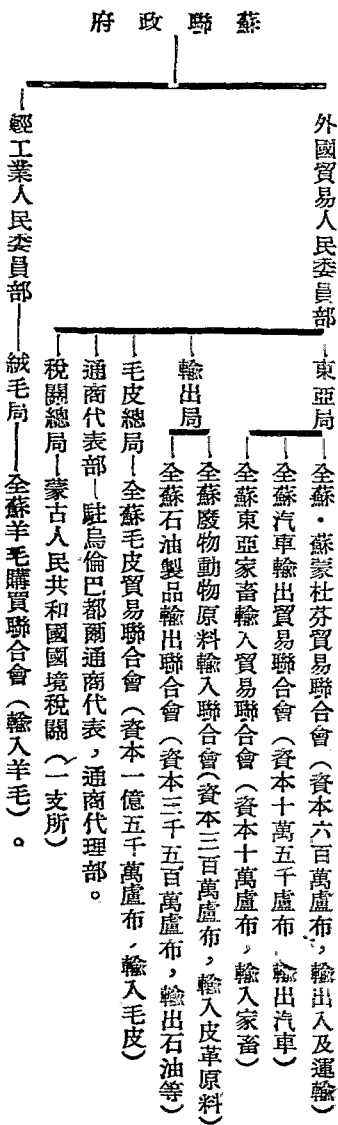 蘇聯政府
外國貿易人民委員部
東亞局
全蘇·蘇蒙杜芬貿易聯合會（資本六百萬盧布，輸出入及運輸）
全蘇汽車輸出貿易聯合會（資本十萬五千盧布，輸出汽車）
全蘇東亞家畜輸入貿易聯合會（資本十萬盧布，輸入家畜）
輸出局
全蘇廢物動物原料輸入聯合會（資本三百萬盧布，輸入皮革原料）
全蘇石油製品輸出聯合會（資本三千五百萬盧布，輸出石油等）
毛皮總局—全蘇毛皮貿易聯合會（資本一億五千萬盧布，輸入毛皮）
通商代表部—駐烏倫巴都爾通商代表，通商代理部。
稅關總局—蒙古人民共和國國境稅關（一支所）
輕工業人民委員部——絨毛局——全蘇羊毛購買聯合會（輸入羊毛）。